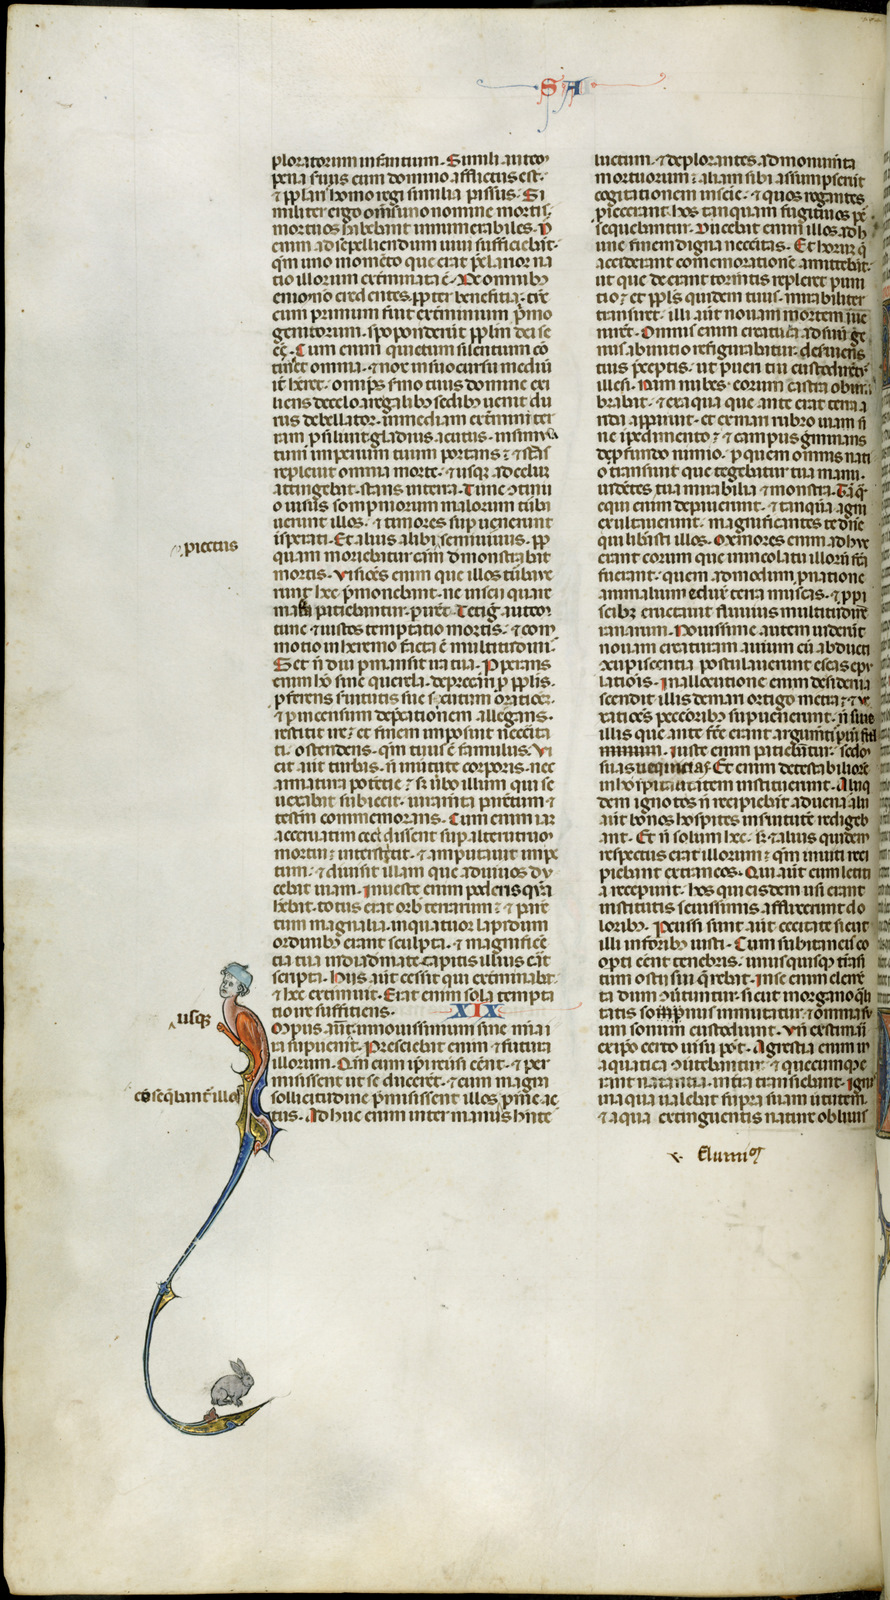 SA
ploratorum infantium. Simili autem
pena seruus cum domino afflictus est.
& pplaris homo regi similia passus. Si
militer ergo omnes uno nomine mortis
mortuos habebant innumerabiles. N
enim ad sepeliendum uiui sufficiebāt.
qm̄ uno momēto que erat p̄clarior na
tio illorum exterminata ē. De omnibus
enim nō credentes. ppter beneficia: tūc
cum primum fuit exterminium pͥmo
genitorum. spoponderūt pplm dei se
ēē. Cum enim quietum silentium cō
tineret omnia. & nox in suo cursu mediū
it̄ hēret. omps sermo tuus domine exi
liens de celo a regalibus sedibus uenit. du
rus debellator. in mediam exterminii ter
ram prosiluit. gladius acutus. insimula
tum imperium tuum portans: & stans
repleuit omnia morte. & usque ad celum
attingebat stans in terra. Tunc ɔtinu
o uisus sompniorum malorum turba
uerunt illos. & timores superuenerunt
īsperati. Et alius alibi proiectus
semiuiuus. pp
quam moriebatur cām demonstrabat
mortis. Uisiones enim que illos turbaue
runt hec p̄monebant. ne inscii quare
mala patiebantur. perirēt. Tetigit autem
tunc & iustos temptatio mortis. & com
motio in heremo facta ē multitudinis.
Set nō diu permansit ira tua. Properans
enim homo sine querela. deprecari pro pplis.
proferens seruitutis sue scutum. orationem.
& per incensum deprecationem allegans.
restitit ire: et finem imposuit necessita
ti. ostendens. qm̄ tuus ē famulus. Ui
cit aūt turbas. nō in uirtute corporis. nec
armatura potencie: sed uerbo illum qui se
uexabat subiecit. iuramenta parentum &
testm̄ commemorans. Cum enim iam
aceruatim cecidissent super alterutrum
mortui: interstetit. & amputauit impe
tum. & diuisit illam que ad uiuos du
cebat uiam. In ueste enim poderis quam
habebat. totus erat orbis terrarum: & paren
tum magnalia. in quatuor lapidum
ordinibus erant sculpta. & magnificē
tia tua in diademate capitis illius erat
scripta. Hiis aūt cessit qui exterminabat.
& hec extimuit. Erat enim sola tempta
tio ire sufficiens. XIX
usque
orpus aut̄. in nouissimum sine mia i
ra superuenit. Presciebat enim & futura
illorum. Qm̄ cum ipsi reuersi essent. & per
misissent ut se educerēt. & cum magna
sollicitudine p̄misissent illos.
consequebantur illos
penitentie ac
tus. Ad huc enim inter manus hn̄tes
luctum. & deplorantes ad monumenta
mortuorum: aliam sibi assumpserunt
cogitationem inscie. & quos rogantes
proiecerant. hos tanquam fugitiuos per
sequebantur. Ducebat enim illos ad h
unc finem digna necessitas. Et horum que
acciderant comemorationē amittebāt.
ut que deerant tormentis repleret puni
tio: et ppls quidem tuus mirabiliter
transiret. illi aūt nouam mortem inue
nirēt. Omnis enim creatura ad suū ge
nus ab initio refigurabatur. deseruiens
tuis preceptis. ut pueri tui custodirent
illesi. Nam nubes eorum castra obum
brabat. & ex aqua que ante erat terra a
rida apparuit. et ex mari rubro uiam si
ne īpedimento: & campus germinans
de profundo nimio. per quem omnis nati
o transiuit que tegebatur tua manu.
uidētes tua mirabilia & monstra. Tāqm̄
equi enim depauerunt. & tanquam agni
exultauerunt. magnificantes te dn̄e
qui liberasti illos. Memores enim ad huc
erant eorum que in incolatu illorū facta
fuerant. quemadmodum pro natione
animalium eduxit terra muscas. & pro pi
scibus eructauit fluuius multitudinē
ranarum. Nouissime autem uiderunt
nouam creaturam auium cū abducti
ɔcupiscentia postulauerunt escas epu
lationis. In allocutione enim desiderii a
scendit illis de mari ortigometra: & u
exationes peccatoribus superuenerunt. nō sine
illis que ante facta erant argumentis per uim
fluminum. iuste enim patiebantur sedum
suas nequicias. Et enim detestabiliorē
inhospitalitatem instituerunt. Aliiq
dem ignotos nō recipiebāt aduenas. alii
aūt bonos hospites in seruitutē redigeb
ant. Et nō solum hec. sed & alius quidem
respectus erat illorum: qm̄ inuiti reci
piebant extraneos. Qui aūt cum leticia
a receperunt. hos qui eisdem usi erant
institutis seuissimis afflixerunt do
loribus. Percussi sunt aūt cecitate sicut
illi in foribus iusti. Cum subitaneis co
operti ēent tenebris. unusquisque trāsi
tum ostii sui querebat. In se enim elemen
ta dum ɔuertuntur. sicut in organo quali
tatis sonus immutatur. & omnia su
um sonum custodiunt. Un̄ estimari
ex ipso certo uisu potest. Agrestia enim in
aquatica ɔuertebantur. & quecumque
erant natantia. in terra transiebant. Ignis
in aqua ualebat supra suam uirtutem.
& aqua extinguentis nature obliuis
fluminum